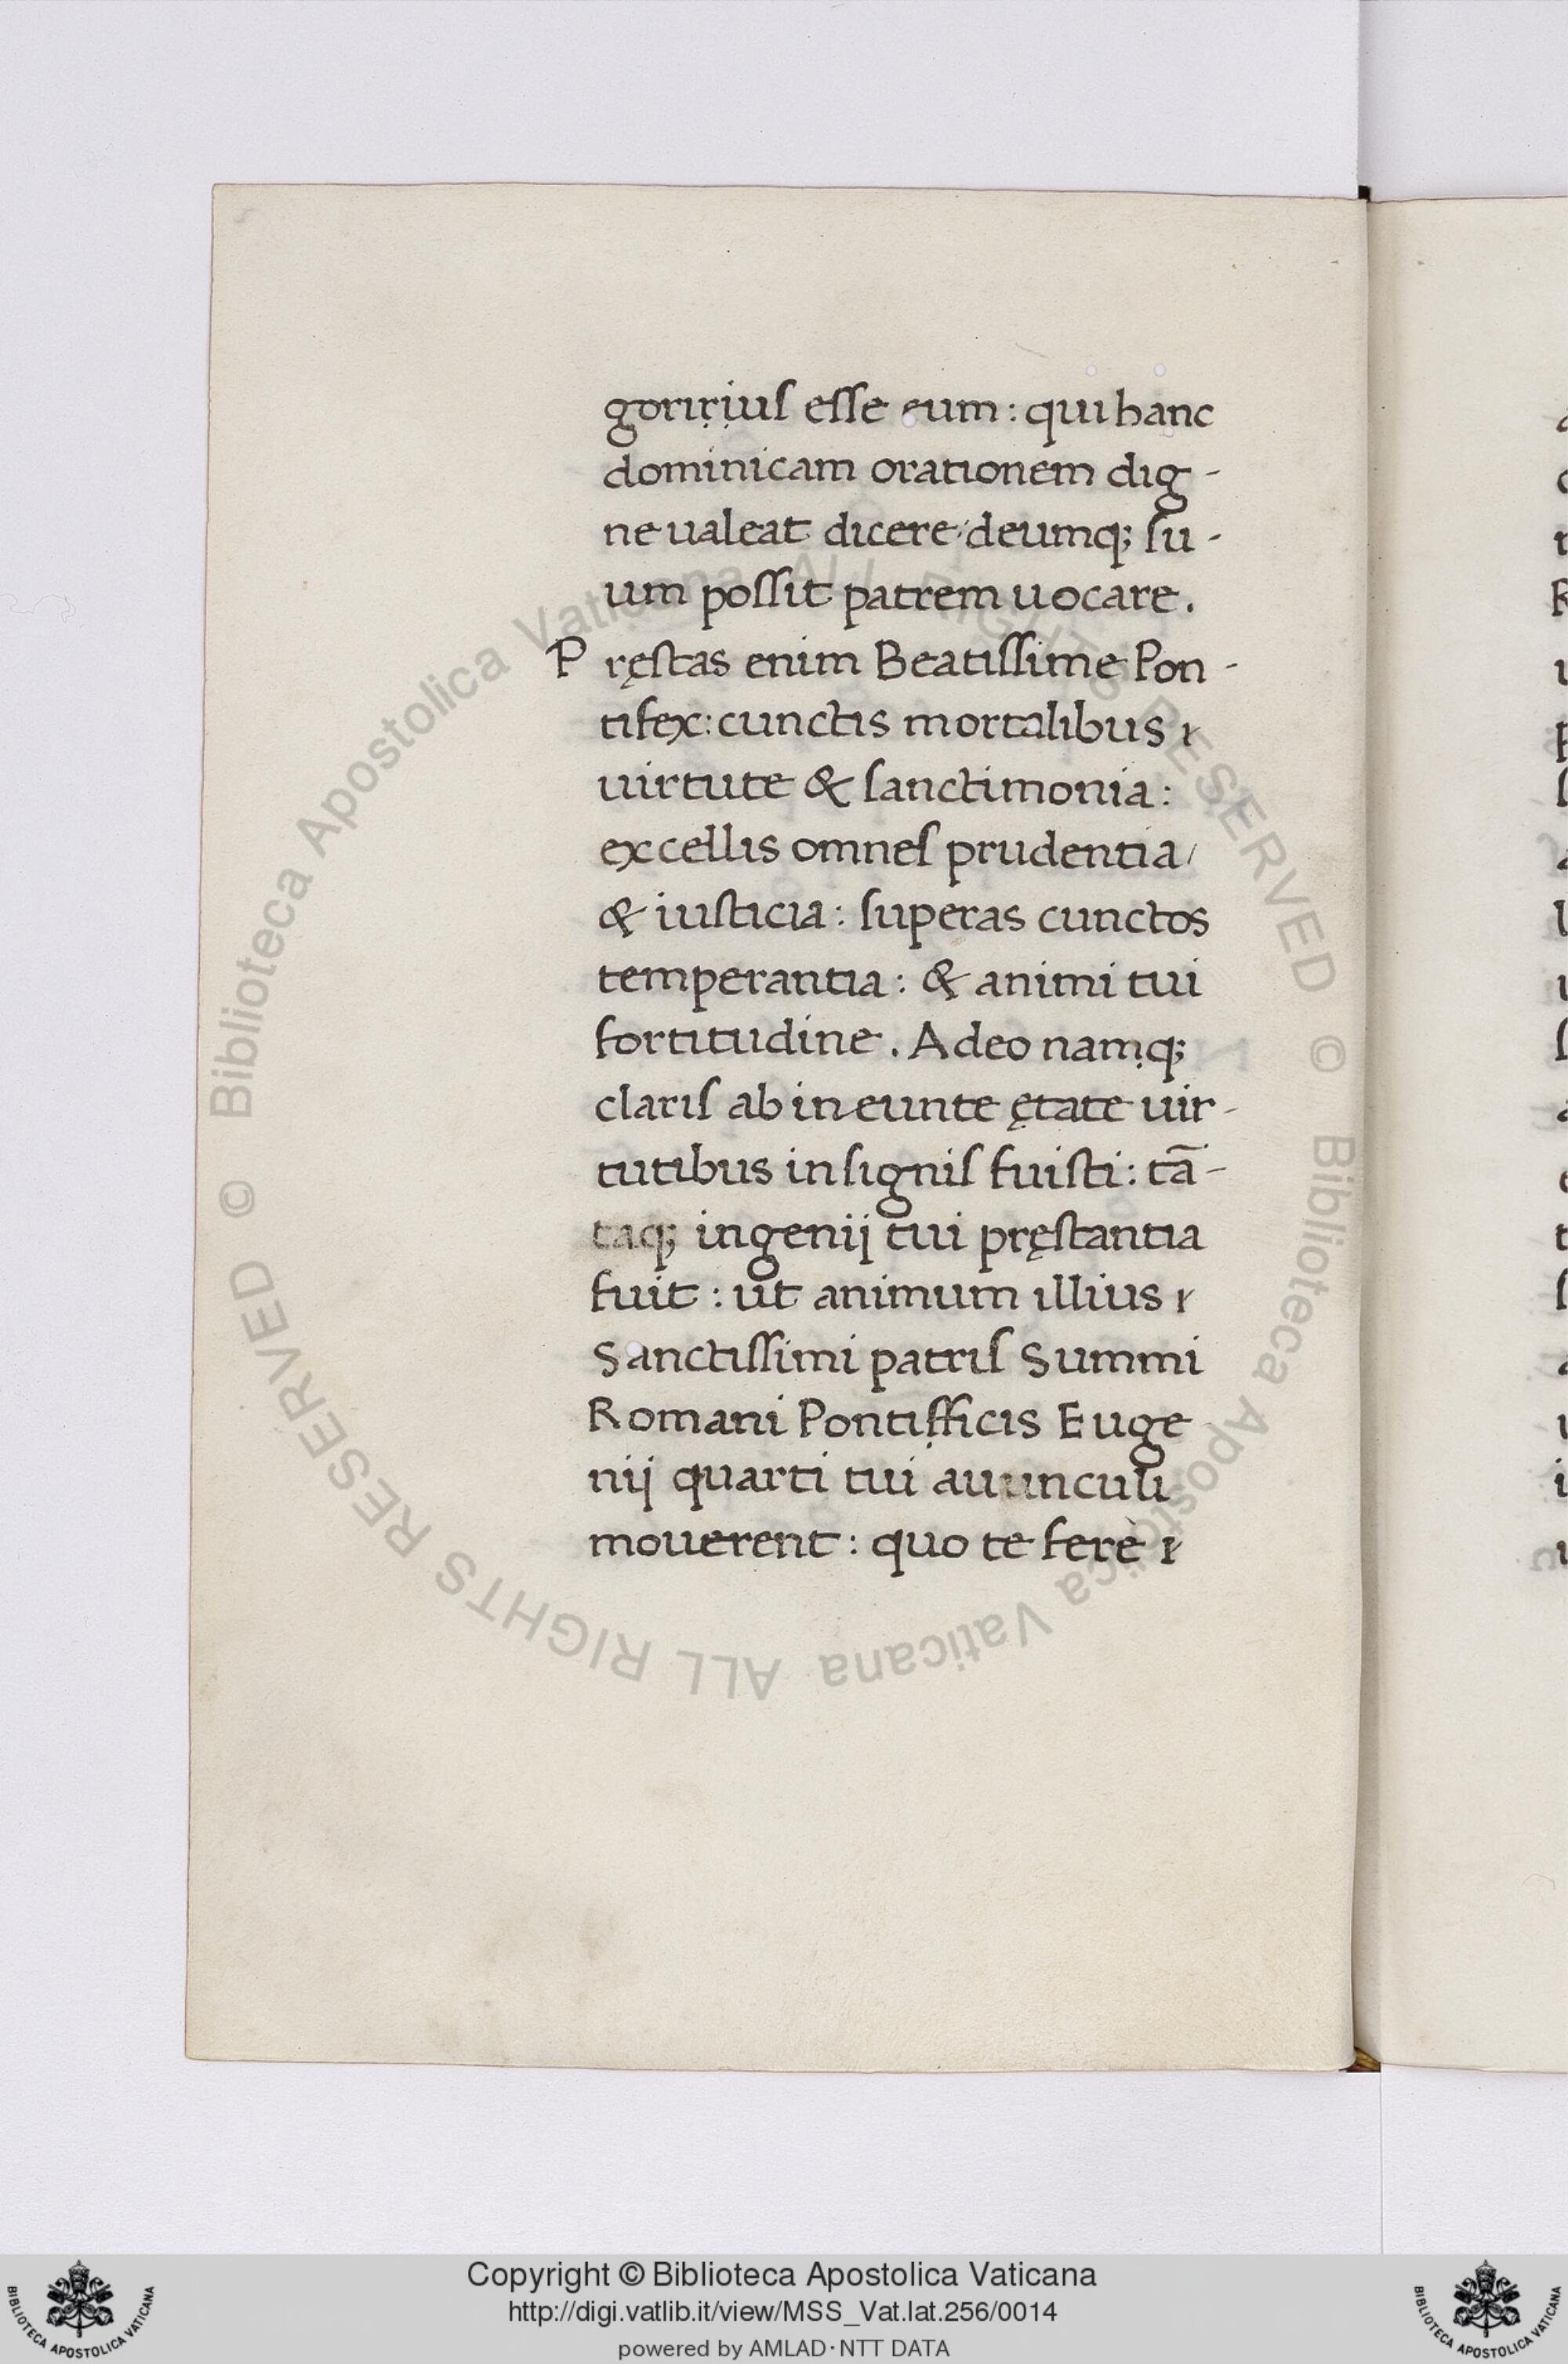 goririuſ eſſe eum : qui hanc
dominicam orationem dig -
ne ualeat dicere / deumq; ſu -
um poſſit patrem uocare .
P ręſtas enim Beatiſſime Pon -
tifex : cunctis mortalibus
uirtute & ſanctimonia :
excellis omneſ prudentia /
& iuſticia : ſuperas cunctos
temperantia : & animi tui
fortitudine . Adeo namq;
clariſ ab ineunte ętate uir -
tutibus inſigniſ fuiſti : tā -
taq; ingenij tui pręſtantia
fuit : ut animum illius
Sanctiſſimi patriſ Summi
Romani Pontifficis Euge
nij quarti tui auunculi
mouerent : quo te ferè
© Biblioteca Apostolica Vaticana ALL RIGHTS RESERVED © Biblioteca Apostolica Vaticana ALL RIGHTS RESERVED
Copyright © Biblioteca Apostolica Vaticana
http://digi.vatlib.it/view/MSS_Vat.lat.256/0014
powered by AMLAD · NTT DATA
BIBLIOTECA APOSTOLICA VATICANA
BIBLIOTECA APOSTOLICA VATICANA